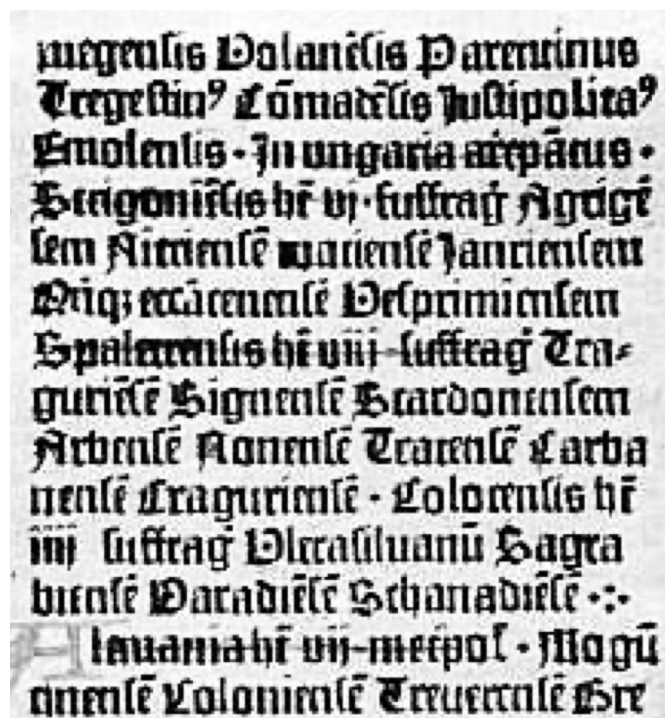 megensis Polanēsis Parentinus
Tregestinꝰ Cōmacēsis Justipolitaꝰ
Emolensis · In ungaria archiepātus ·
Strigoniēsis hꝫ vj · suffragꝰ Agrigē
sem Nitriensē Jauriensem
Vesprimiensem
Spaletensis hꝫ viij suffragꝰ Tra⸗
guriēsē Signensē Scardonensem
Arbensē Nonensē Trarensē Carba
nensē Craguriensē · Colocensis hꝫ
iiij suffragꝰ Ultrasiluanū Sagra
biensē Waradiēsē Schanadiēsē ·:·
Alauania hꝫ vij metpol · Mogū
Coloniensē Treuerensē Bre